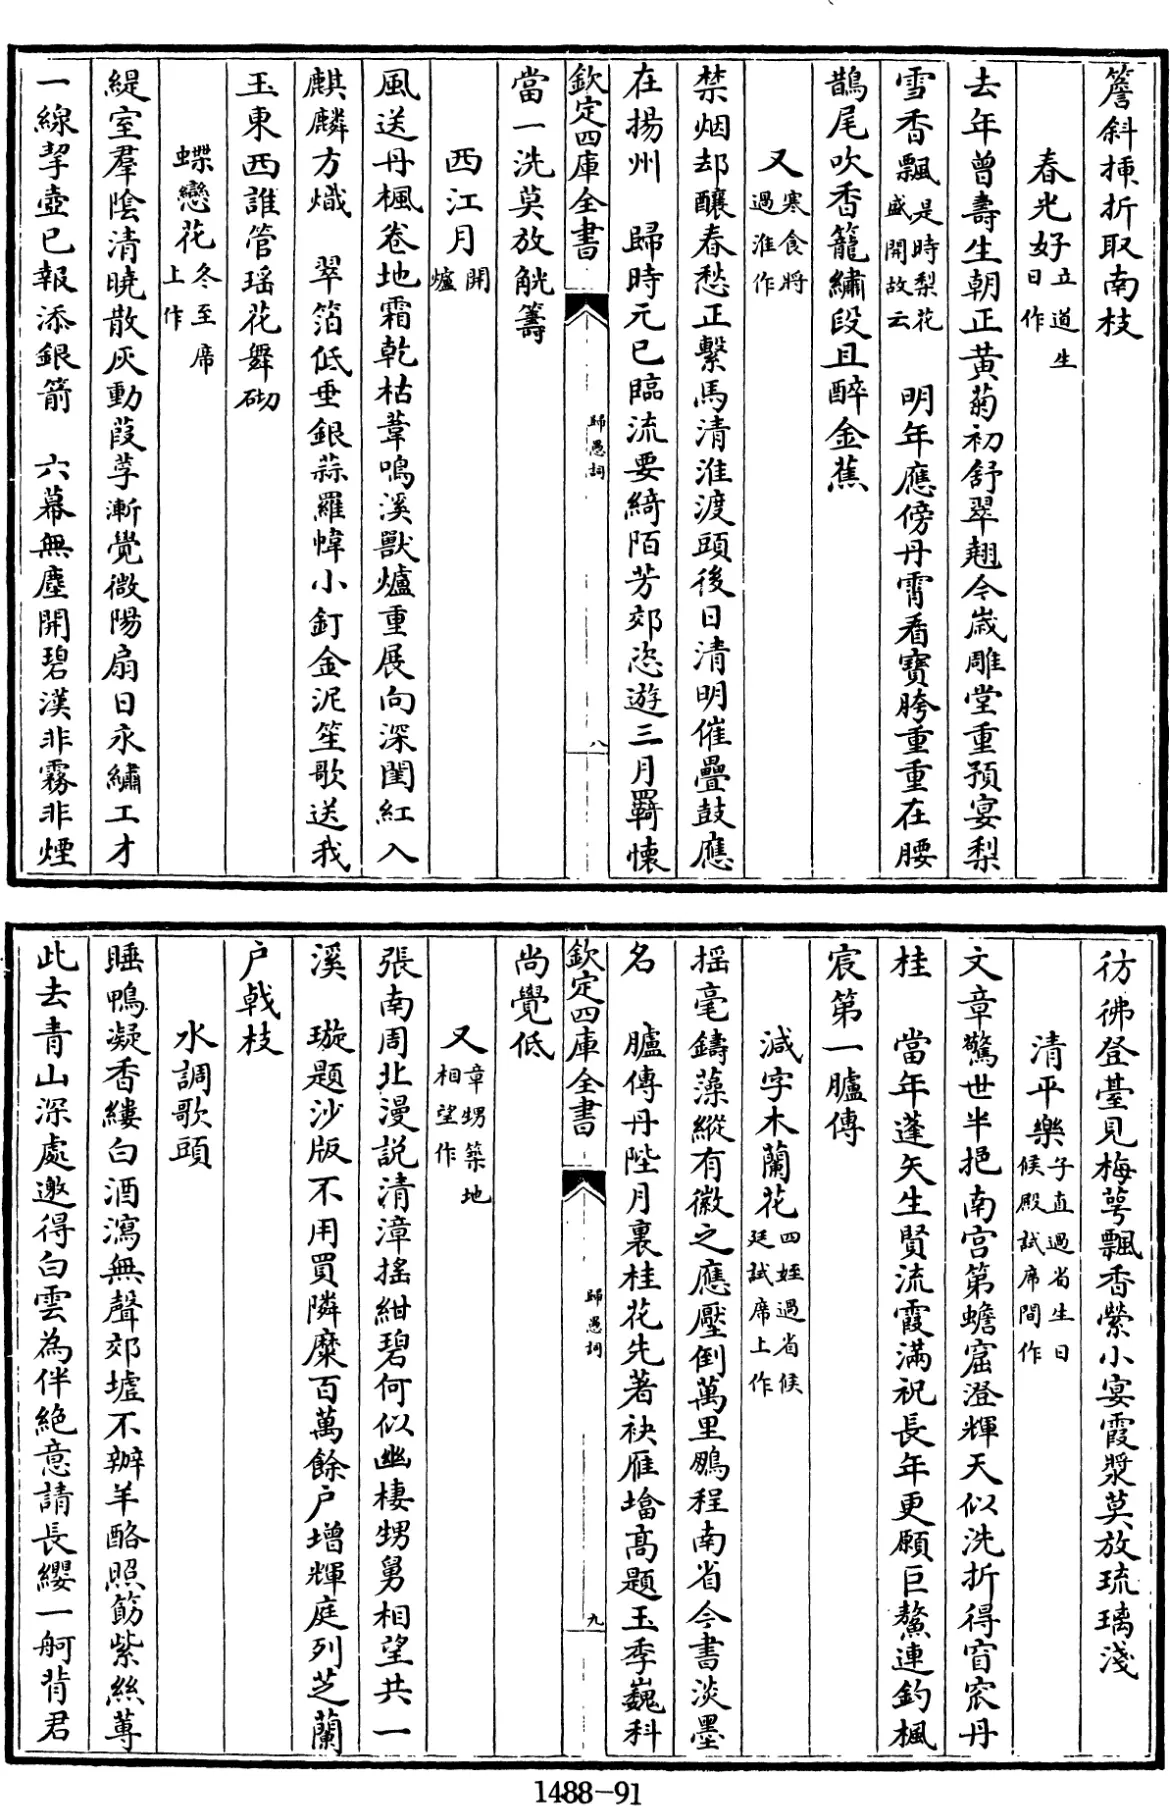 簷斜揷折取南枝
春光好立道生日作
去年曾壽生朝正黃菊初舒翠翹今歲雕堂重預宴梨
雪香飄是時梨花盛開故云　明年應傍丹霄看寶胯重重在腰
鵲尾吹香籠繡段且醉金蕉
又寒食將過淮作
禁烟却釀春愁正繫馬清淮渡頭後日清明催疊鼓應
在揚州　歸時元已臨流要綺陌芳郊恣遊三月羇懷
欽定四庫全書　歸愚詞　八
當一洗莫放觥籌
西江月開爐
風送丹楓卷地霜乾枯葦鳴溪獸爐重展向深閨紅入
麒麟方熾　翠箔低垂銀蒜羅幃小釘金泥笙歌送我
玉東西誰管瑤花舞砌
蝶戀花冬至席上作
緹室羣陰清曉散灰動葭莩漸覺微陽扇日永繡工才
一線挈壺已報添銀箭　六幕無塵開碧漢非霧非煙
彷彿登臺見梅萼飄香縈小宴霞漿莫放琉璃淺
清平樂子直過省生日候殿試席間作
文章驚世半挹南宫第蟾窟澄輝天似洗折得窅㝠丹
桂　當年蓬矢生賢流霞滿祝長年更願巨鰲連釣楓
宸第一臚傳
減字木蘭花四姪過省候廷試席上作
摇毫鑄藻縱有徽之應壓倒萬里鵬程南省今書淡墨
名　臚傳丹陛月裏桂花先著袂雁墖高題玉季巍科
欽定四庫全書　歸愚詞　九
尚覺低
又章甥築地相望作
張南周北漫説清漳揺紺碧何似幽棲甥舅相望共一
溪　璇題沙版不用買隣糜百萬餘户增輝庭列芝蘭
户戟枝
水調歌頭
睡鴨凝香縷白酒瀉無聲郊墟不辦羊酪照筯紫絲蓴
此去青山深處邀得白雲為伴絶意請長纓一舸背君
1488-91